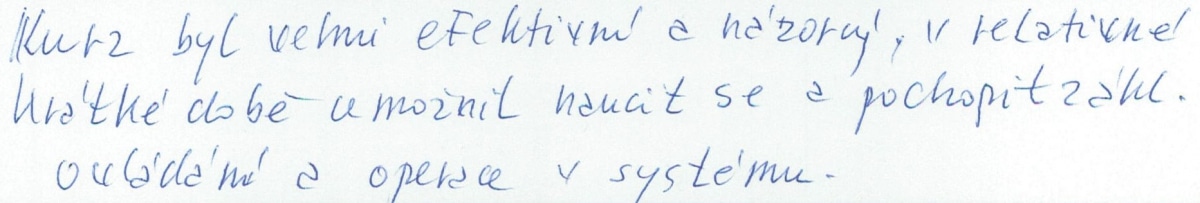 Kurz byl velmi efektivní a názorný, v relativně
krátké době umožnil naučit se a pochopit zákl.
ovládání a operace v systému.